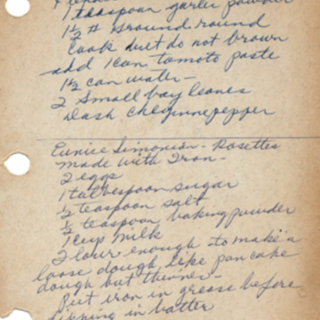 1 teaspoon garlic powder
1½ # Ground round
Cook but do not brown
add 1 can tomato paste
1½ can water –
2 Small bay leaves
Dash cheyenne pepper
Eunice Simonian – Rosettes
Made with Iron –
2 eggs
1 tablespoon sugar
½ teaspoon salt
½ teaspoon baking powder
1 cup milk
Flour enough to make a
loose dough like pancake
dough but thinner –
Put iron in grease before
dipping in batter